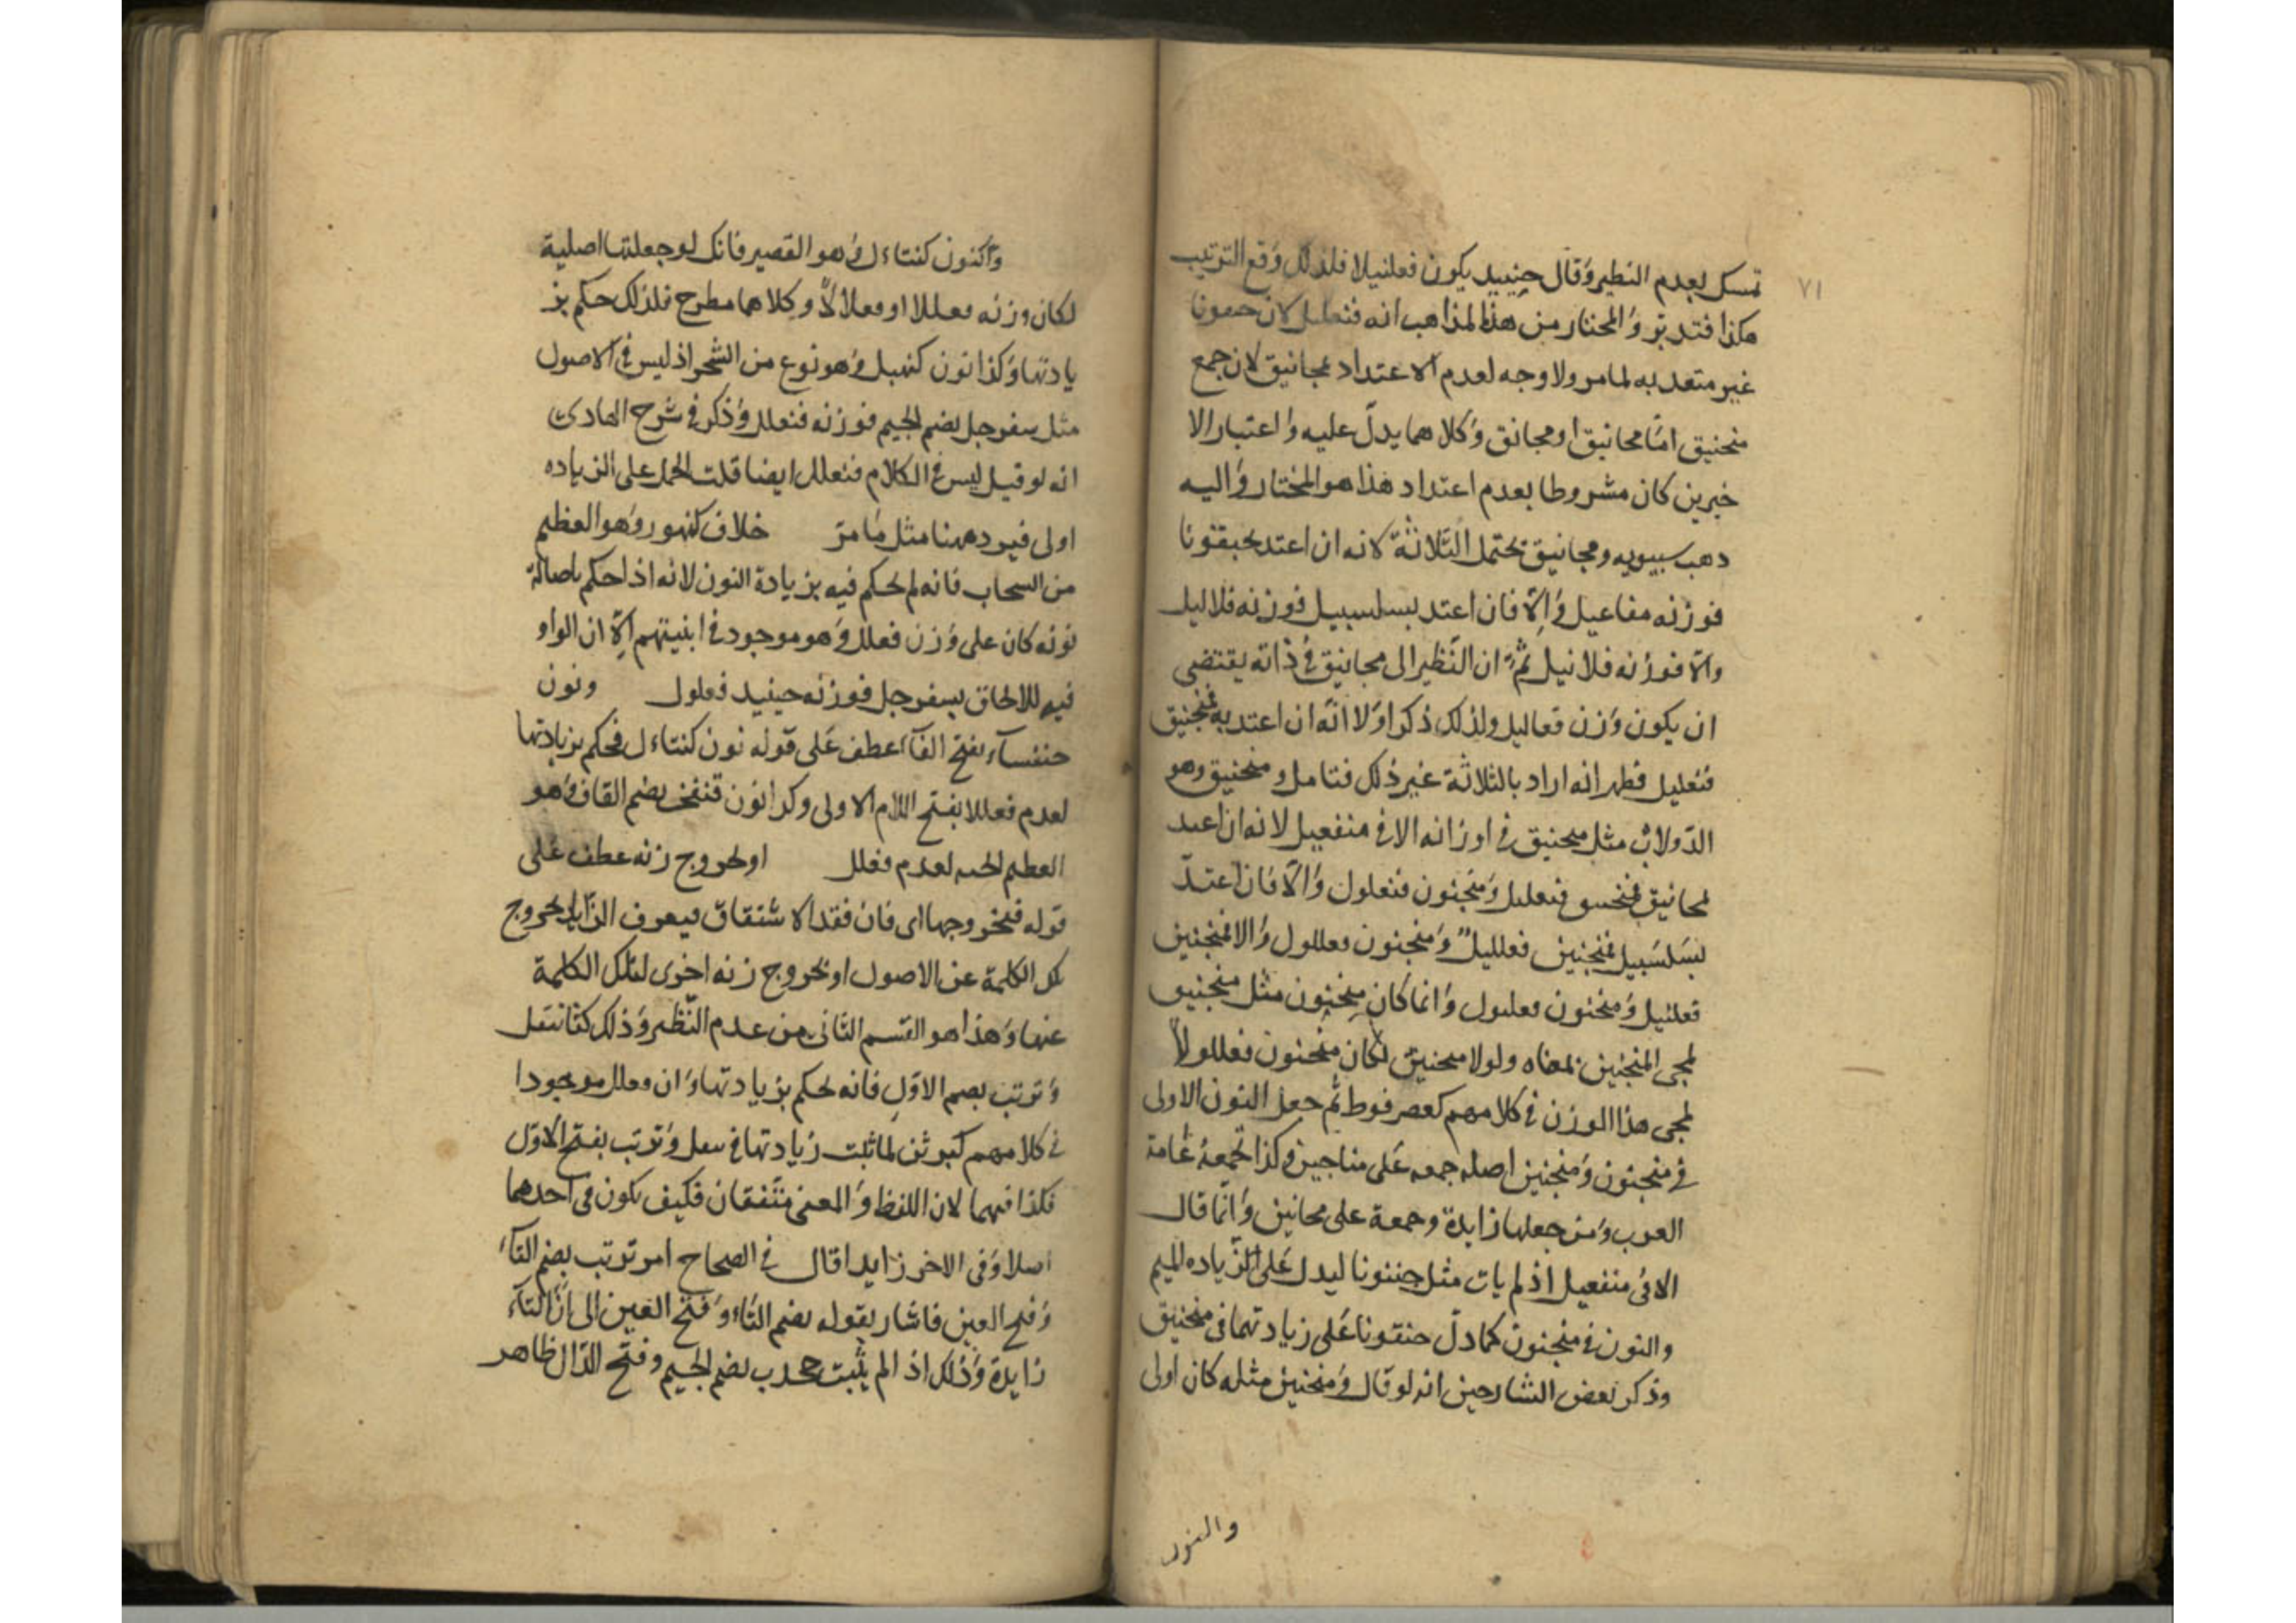 ٧١
تمسك بعدم النظير وقال حينيد يكون فعلنيلا فلذلك وقع الترتيب
هكذا فتدبر والمختار من هذه المذاهب انه فنعليل لان جمعونا
غير متعد به لما مر ولا وجه لعدم الاعتداد بمجانيق لان جمع
منجنيق اما مجانيق او مجانق وكلاهما يدل عليه واعتبار الا
خيرين كان مشروطا بعدم اعتداد هذا هو المختار واليه
دهب سيبويه ومجانيق يحتمل الثلاثة لانه ان اعتد بجنقونا
فوزنه مفاعيل والا فان اعتد بسلسبيل فوزنه فلاليل
والا فوزنه فلانيل ثم ان النظير الى مجانيق في ذاته يقتضى
ان يكون وزن فعاليل ولذلك ذكر اولا انه ان اعتد به فمنجنيق
فنعليل فظهر انه اراد بالثلاثة غير ذلك فتامل ومنجنيق وهو
الدولاب مثل منجنيق في اوزانه الا في منفعيل لانه ان اعتد
بمجانيق فمنجنين فنعليل ومنجنون فنعلول والا فان اعتد
بسلسبيل فمنجنين فعلليل ومنجنون فعللول والا فمنجنين
فعلنيل ومنجنون فعلنول وانما كان منجنون مثل منجنيق
لمجى المنجنين بمعناه ولولا منجنين لكان منجنون فعللولا
لمجى هذا الوزن في كلامهم كعصرفوط ثم جعل النون الاولى
في منجنون ومنجنين اصله جمعه على مناجين وكذا تجمعه عامة
العرب ومن جعلها زايدة وجمعة على مجانين وانما قال
الا في منفعيل اذ لم يات مثل جننونا ليدل على الزياده الميم
والنون في منجنون كما دل جنقونا على زيادتهما في منجنيق
وذكر بعض الشارحين انه لو قال ومنجنين مثله كان اولى
والنون
واكنون كنتاءل وهو القصير فانك لو جعلتها اصلية
لكان وزنه فعللا او فعلالا وكلاهما مطرح فلذلك حكم بز
يادتها وكذا نون كنهبل وهو نوع من الشجر اذ ليس في الاصول
مثل سفرجل بضم الجيم فوزنه فنعلل وذكر في شرح الهادى
انه لو قيل ليس في الكلام فنعلل ايضا قلت الحمل على الزياده
اولى فيردههنا مثل ما مر خلاف كنهور وهو العظيم
من السحاب فانه لم يحكم فيه بزيادة النون لانه اذا حكم باصالة
نونه كان على وزن فعلل وهو موجود في ابنيتهم الا ان الواو
فيه للالحاق بسفرجل فوزنه حينيد فعلول ونون
خنفساء بفتح الفاء عطف على قوله نون كنتاءل فحكم بزيادتها
لعدم فعللا بفتح اللام الاولى وكذا نون قنفخر بضم القاف وهو
العظيم الجثه لعدم فعلل او بخروج زنه عطف على
قوله فبخروجها اى فان فقد الاشتقاق فيعرف الزايد بخروج
تلك الكلمة عن الاصول او بخروج زنه اخرى لتلك الكلمة
عنها وهذا هو القسم الثانى من عدم النظير وذلك كتاء تتفل
وترتب بضم الاول فانه يحكم بزيادتها وان فعلل موجودا
في كلامهم كبرثن لما ثبت زيادتها في تتفل وترتب بفتح الاول
فكذا فيهما لان اللفظ والمعنى متفقان فكيف يكون في احدهما
اصلا وفى الاخر زايدا قال في الصحاح امر ترتب بضم التاء
وفتح العين فاشار بقوله بضم التاء وفتح العين الى ان التاء
زايدة وذلك اذ الم يثبت جحدب بضم الجيم وفتح الدال ظاهر